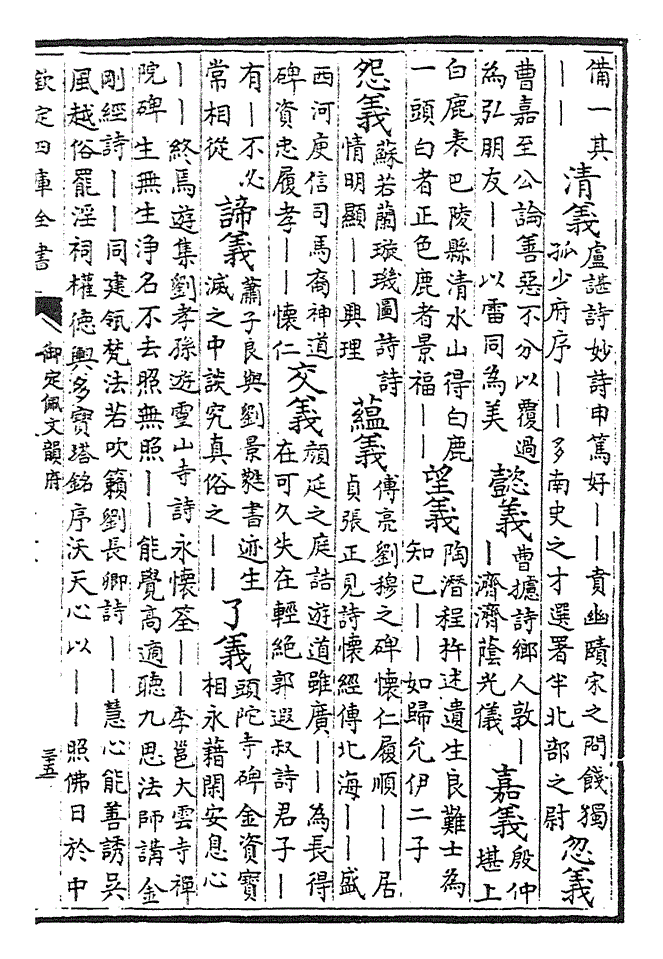 備一其
——
清義
盧諶詩妙詩申篤好——貴幽賾宋之問餞獨
孤少府序——多南史之才選署半北部之尉
忽義
曹嘉至公論善惡不分以覆過
為弘朋友——以雷同為美
懿義
曹攄詩鄉人敦—
—濟濟蔭光儀
嘉義
殷仲
堪上
白鹿表巴陵縣清水山得白鹿
一頭白者正色鹿者景福——
望義
陶潛程杵述遺生良難士為
知己——如歸允伊二子
怨義
蘇若蘭璇璣圖詩詩
情明顯——興理
蘊義
傅亮劉穆之碑懷仁履順——居
貞張正見詩懷經傳北海——盛
西河庾信司馬裔神道
碑資忠履孝——懷仁
交義
顏延之庭誥遊道雖廣——為長得
在可久失在輕絕郭遐叔詩君子—
有—不必
常相從
諦義
蕭子良與劉景蕤書迹生
滅之中談究真俗之——
了義
頭陀寺碑金資寶
相永藉閑安息心
——終焉遊集劉孝孫遊靈山寺詩永懷筌——李邕大雲寺禪
院碑生無生淨名不去照無照——能覺高適聽九思法師講金
剛經詩——同建瓴梵法若吹籟劉長卿詩——慧心能善誘吳
風越俗罷淫祠權德輿多寶塔銘序沃天心以——照佛日於中
欽定四庫全書
御定佩文韻府
三五